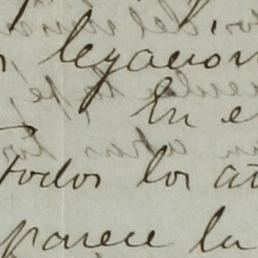 legación
En e
Todos los at
parece la